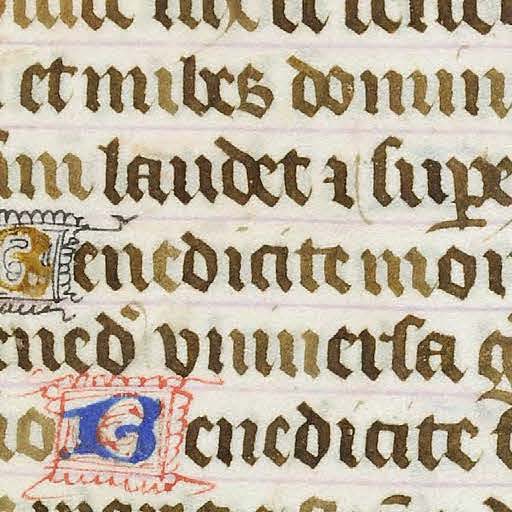 et nubes domin
um laudet ⁊ supe
Benedicite mon
ened' vniuersa g
no Benedicite